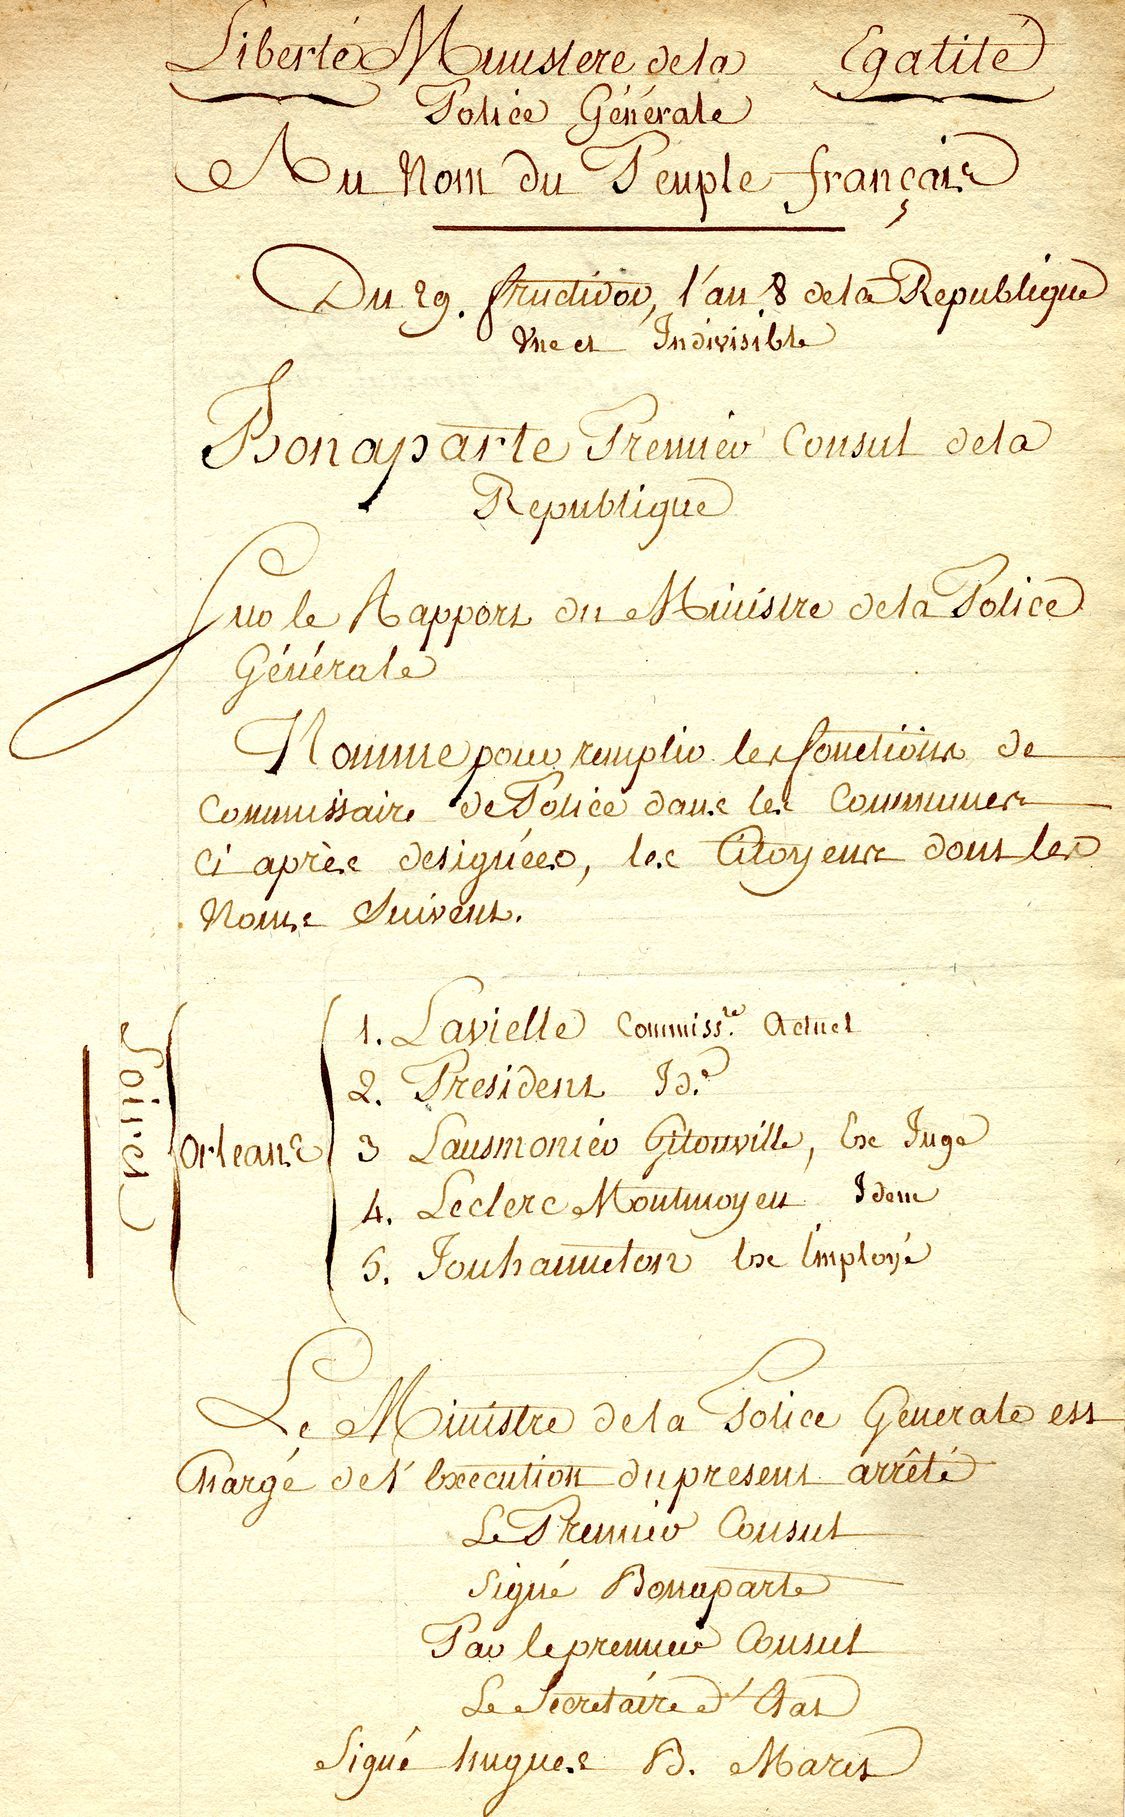 Liberté Ministere de la Egalité
Police Générale
Au Nom du Peuple français
Du 29. fructidor, l'an 8 de la Republique
Une et Indivisible
Bonaparte Premier Consul de la
Republique
Sur le Rapport du Ministre de la Police
Générale
Nomme pour remplir les fonctions de
Commissaire de Police dans les Communes
ci après designées, les Citoyens dont les
Noms Suivent.
Loiret
Orleans
1. Lavielle Commiss.re Actuel
2. President Id.e
3 Lausmonier Gitonville, Ex Juge
4. Leclerc Montmoyen Idem
5. Jouhanneton Ex Employé
Le Ministre de la Police Generale est
Chargé de l'Execution du present arrêté
Le Premier Consul
Signé Bonaparte
Par le premier Consul
Le Secretaire d'Etat
Signé hugues B. Maret